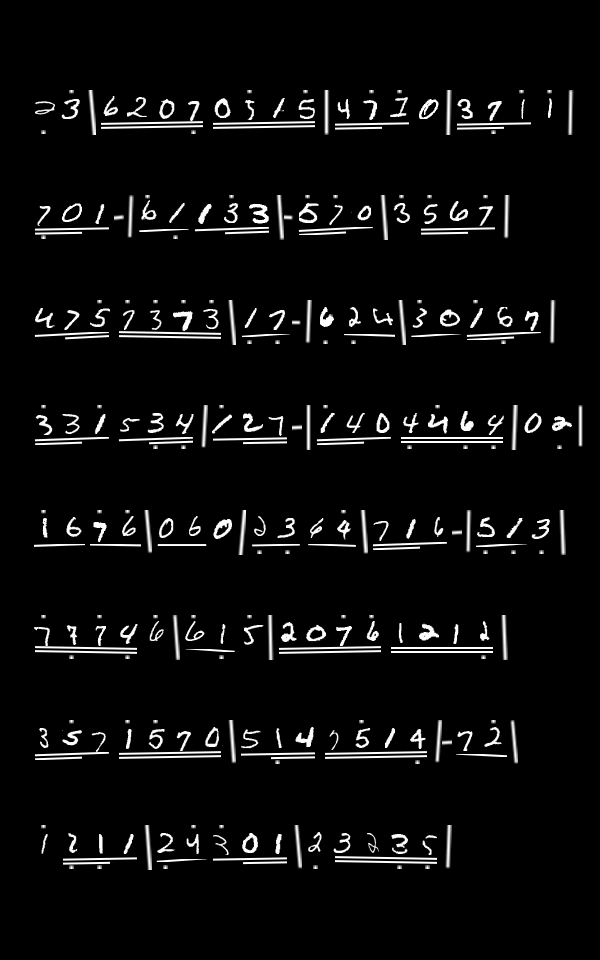 23|62070515|4710|3711|
701-|61133|-570|3567|
4757373|17-|624|30167|
331534|127-|1404464|02|
1676|060|2364|716-|513|
77746|615|20761212|
3571570|5147514|-72|
1211|24301|23235|